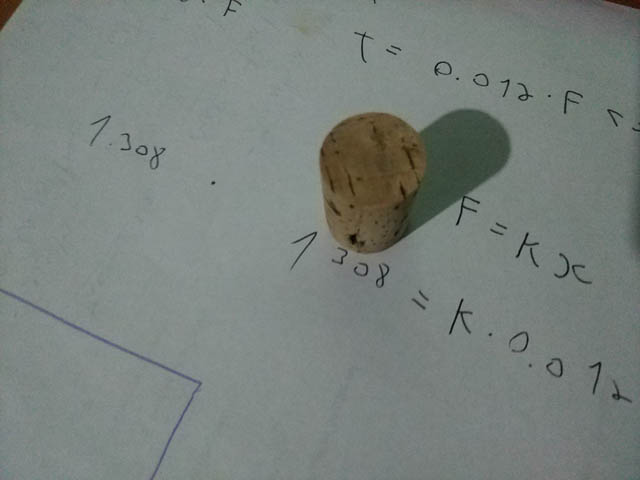 F
T = 0.012 · F <
1.308
F = K x
1 308 = K · 0.012